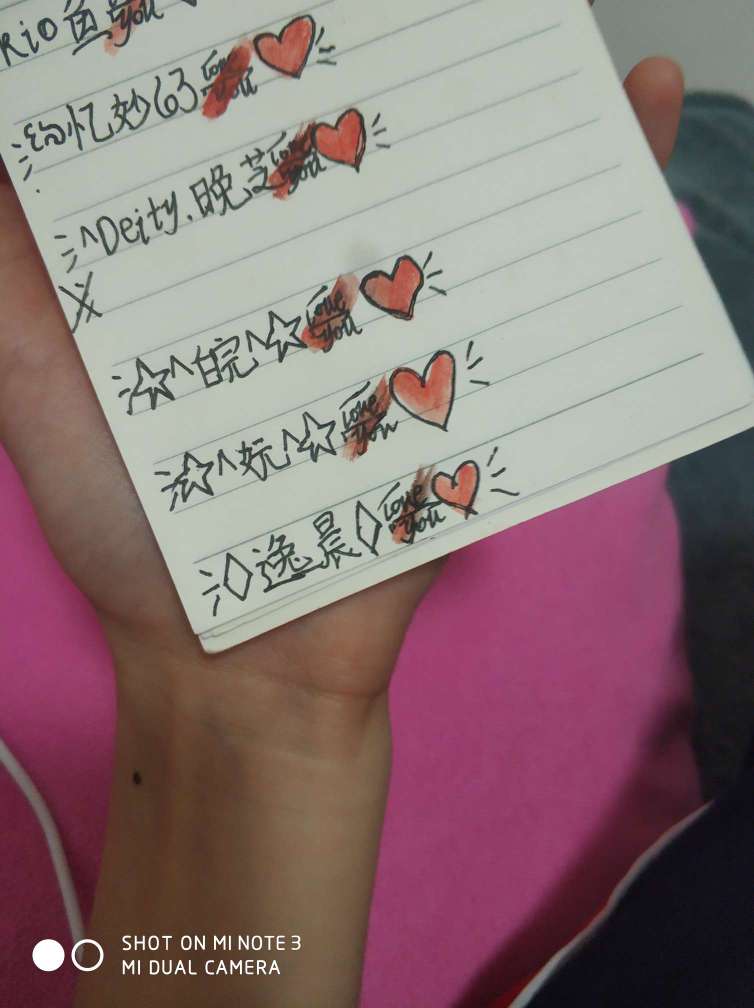 Rio鱼 you
忆妙63 Love you
^Deity.晚芝 Love you
☆^皖^☆ Love you
☆^妧^☆ Love you
◇逸晨◇ Love you
SHOT ON MI NOTE 3
MI DUAL CAMERA